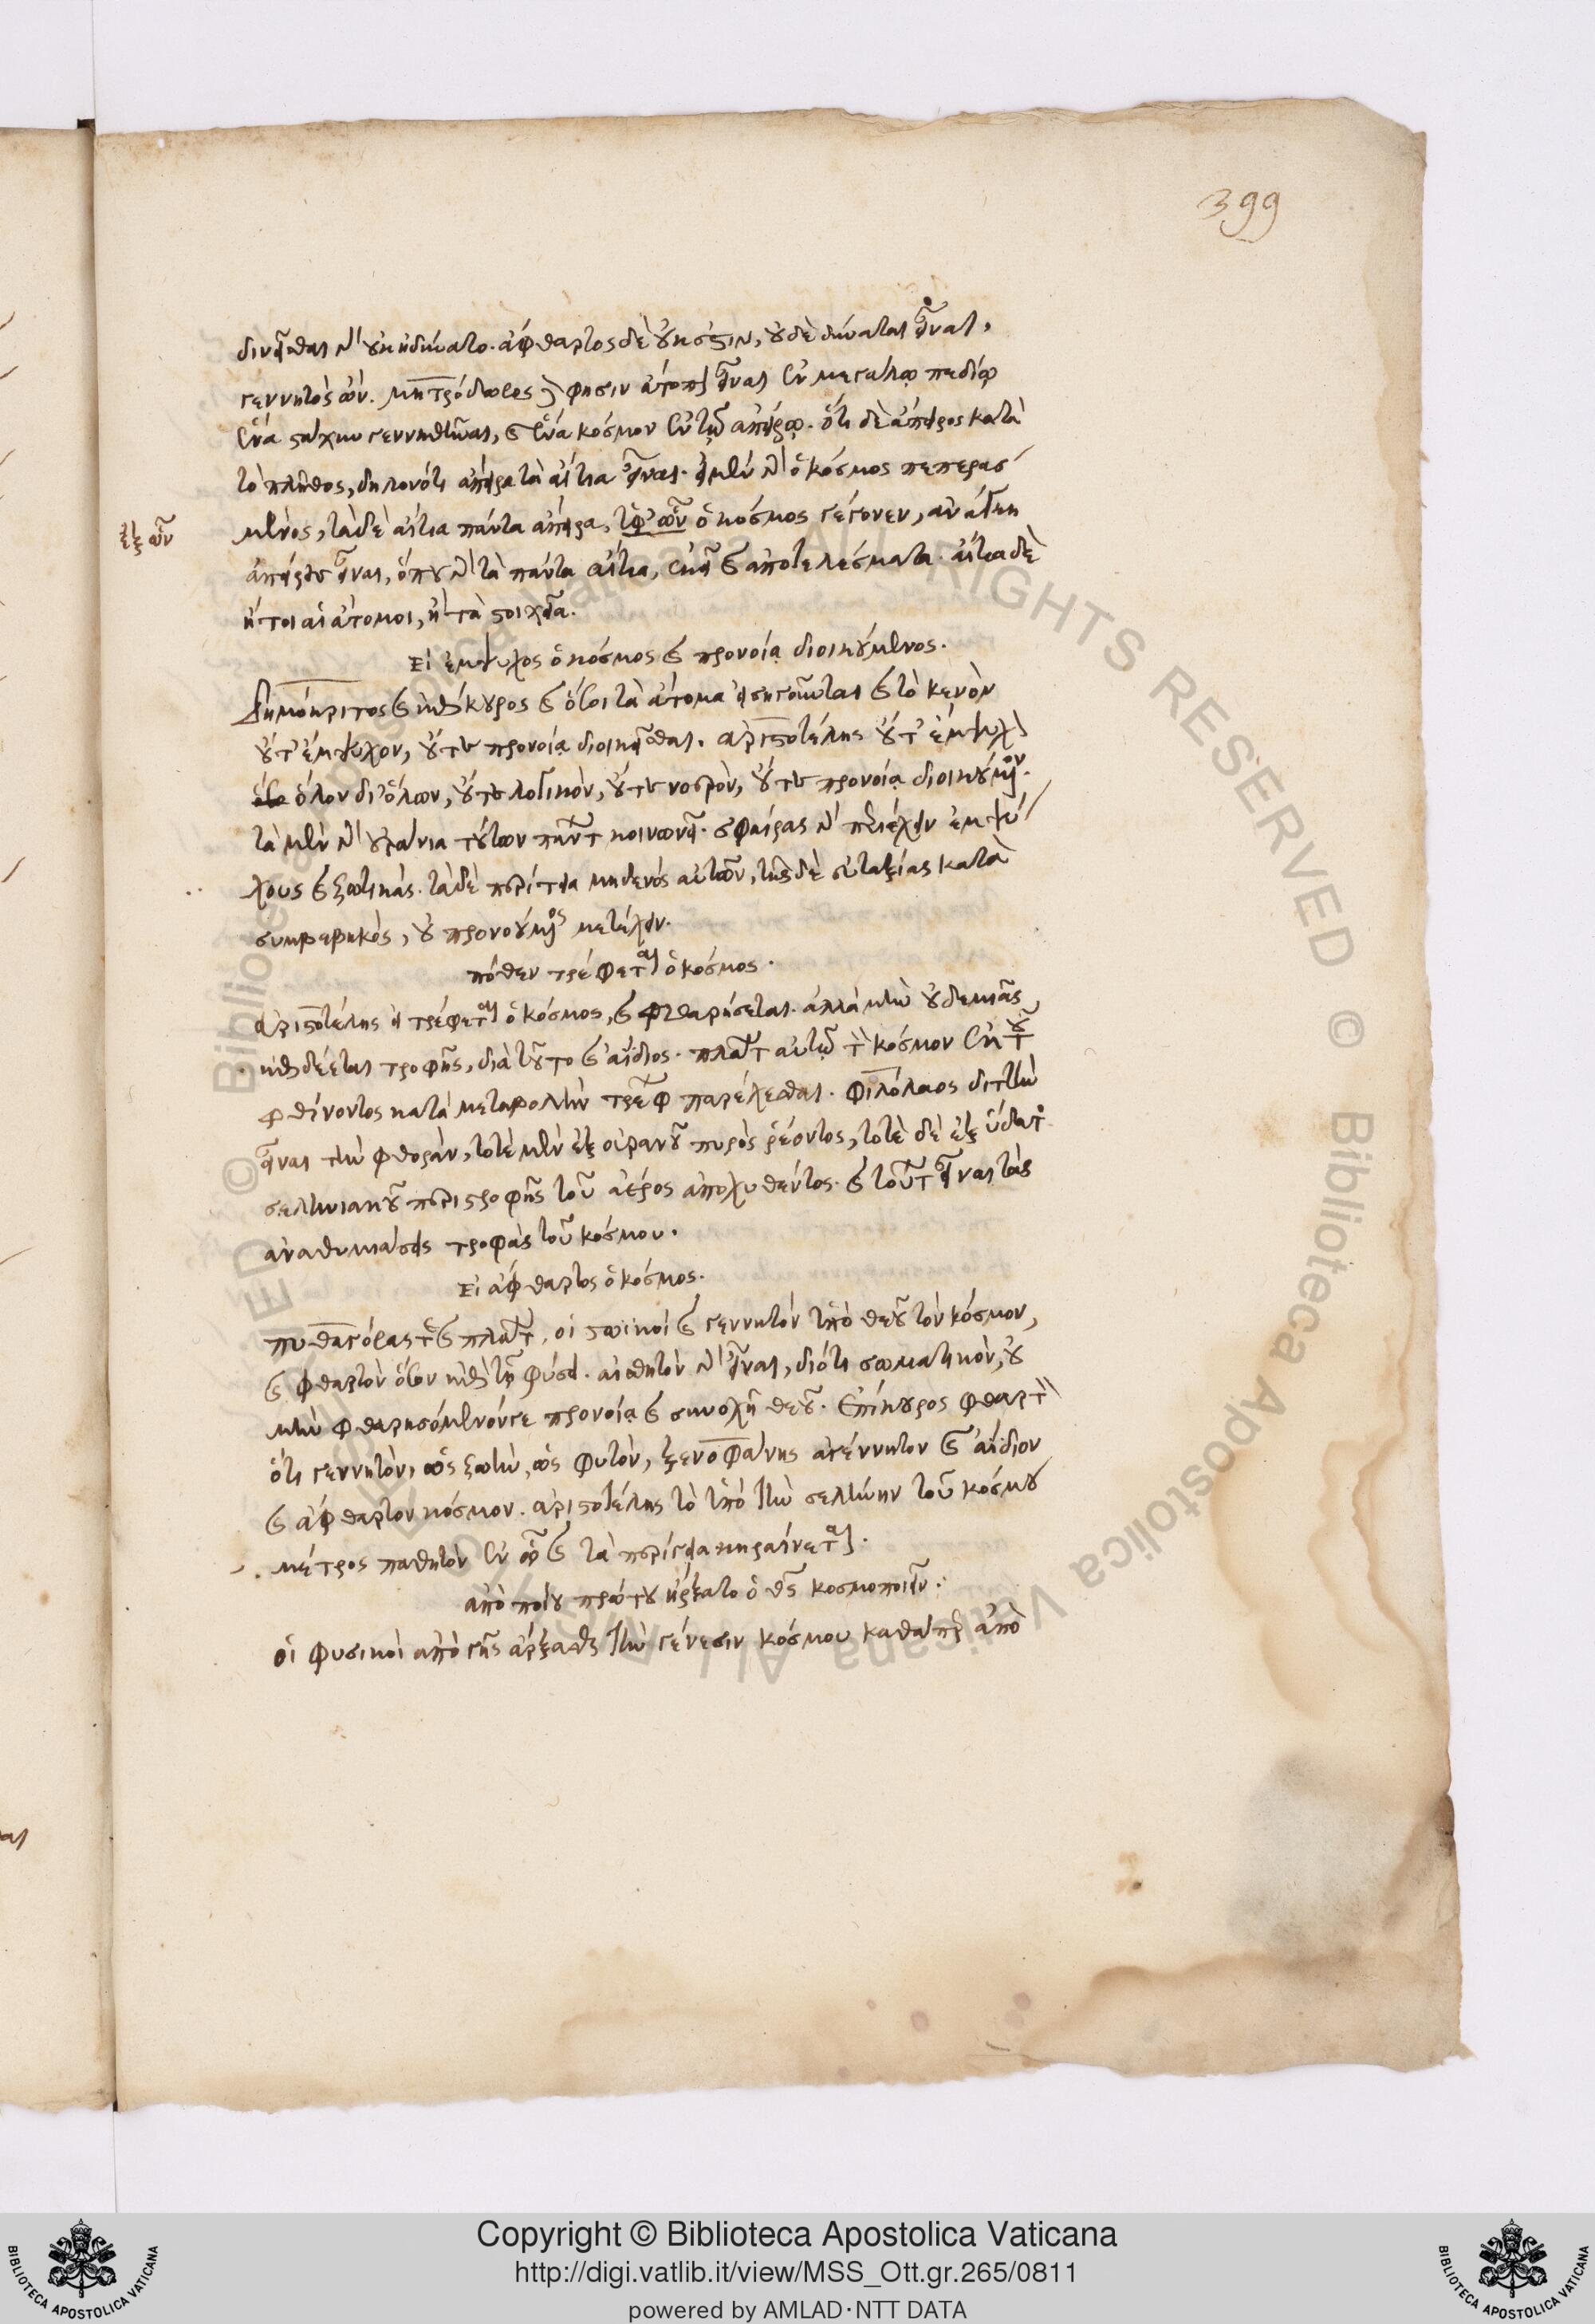 399
δινεῖσθαι γὰρ οὐκ ἠδύνατο. ἄφθαρτος δὲ οὐκ ἔστιν, οὐδὲ δύναται εἶναι,
γεννητὸς ὤν. Μητρόδωρος φησιν ἄτοπον εἶναι ἐν μεγάλῳ πεδίῳ
ἕνα στάχυν γεννηθῆναι, καὶ ἕνα κόσμον ἐν τῷ ἀπείρῳ. ὅτι δὲ ἄπειρος κατὰ
τὸ πλῆθος, δῆλον ὅτι ἄπειρα τὰ αἴτια εἶναι. εἰ μὲν γὰρ ὁ κόσμος πεπερασ
μένος, τὰ δὲ αἴτια πάντα ἄπειρα, ἐφ' ὧν ὁ κόσμος γέγονεν, ἀνάγκη
ἐξ ὧν
ἀπείρους εἶναι, ὅπου γὰρ τὰ πάντα αἴτια, ἐκεῖ καὶ ἀποτελέσματα. αἴτια δὲ
ἤτοι αἱ ἄτομοι, ἢ τὰ στοιχεῖα.
Εἰ ἔμψυχος ὁ κόσμος καὶ προνοίᾳ διοικούμενος.
Δημόκριτος καὶ ἐπίκουρος καὶ ὅσοι τὰ ἄτομα εἰσηγοῦνται καὶ τὸ κενὸν
οὔτ' ἔμψυχον, οὔτε προνοίᾳ διοικεῖσθαι. ἀριστοτέλης οὔτ' ἔμψυχον
ὅλον δι' ὅλων, οὔτε λογικὸν, οὔτε νοερὸν, οὔτε προνοίᾳ διοικούμενον.
τὰ μὲν γὰρ οὐράνια τούτων πάντων κοινωνεῖ. σφαίρας γὰρ περιέχειν ἐμψύ
χους καὶ ζωτικάς. τὰ δὲ περίγεια μηδενὸς αὐτῶν, τῆς δὲ εὐταξίας κατὰ
συμβεβηκὸς, οὐ προηγουμένως μετέχειν.
πόθεν τρέφεται ὁ κόσμος.
ἀριστοτέλης εἰ τρέφεται ὁ κόσμος, καὶ φθαρήσεται. ἀλλὰ μὴν οὐδεμιᾶς
ἐπιδέεται τροφῆς, διὰ τοῦτο καὶ ἀΐδιος. πλάτων αὐτῷ τὸν κόσμον ἐκ τοῦ
φθίνοντος κατὰ μεταβολὴν τρέφον παρέχεσθαι. Φιλόλαος διττὴν
εἶναι τὴν φθορὰν, τοτὲ μὲν ἐξ οὐρανοῦ πυρὸς ῥέοντος, τοτὲ δὲ ἐξ ὕδατος
σεληνιακοῦ περιστροφῆς τοῦ ἀέρος ἀποχυθέντος. καὶ τούτων εἶναι τὰς
ἀναθυμιάσεις τροφὰς τοῦ κόσμου.
Εἰ ἄφθαρτος ὁ κόσμος.
πυθαγόρας καὶ πλάτων, οἱ στωικοὶ καὶ γεννητὸν ὑπὸ θεοῦ τὸν κόσμον,
καὶ φθαρτὸν ὅσον ἐπὶ τῇ φύσει. αἰσθητὸν γὰρ εἶναι, διότι σωματικὸν, οὐ
μὴν φθαρησόμενόν γε προνοίᾳ καὶ συνοχῇ θεοῦ. Ἐπίκουρος φθαρτὸν
ὅτι γεννητὸν, ὡς ζῶον, ὡς φυτὸν, ξενοφάνης ἀγέννητον καὶ ἀΐδιον
καὶ ἄφθαρτον κόσμον. ἀριστοτέλης τὸ ὑπὸ τὴν σελήνην τοῦ κόσμου
μέτρος παθητὸν ἐν ᾧ καὶ τὰ περίγεια κηραίνεται.
ἀπὸ ποίου πρώτου ἤρξατο ὁ θεὸς κοσμοποιεῖν.
οἱ φυσικοὶ ἀπὸ γῆς ἄρξασθαι τὴν γένεσιν κόσμου καθάπερ ἀπὸ
Copyright © Biblioteca Apostolica Vaticana
http://digi.vatlib.it/view/MSS_Ott.gr.265/0811
powered by AMLAD·NTT DATA